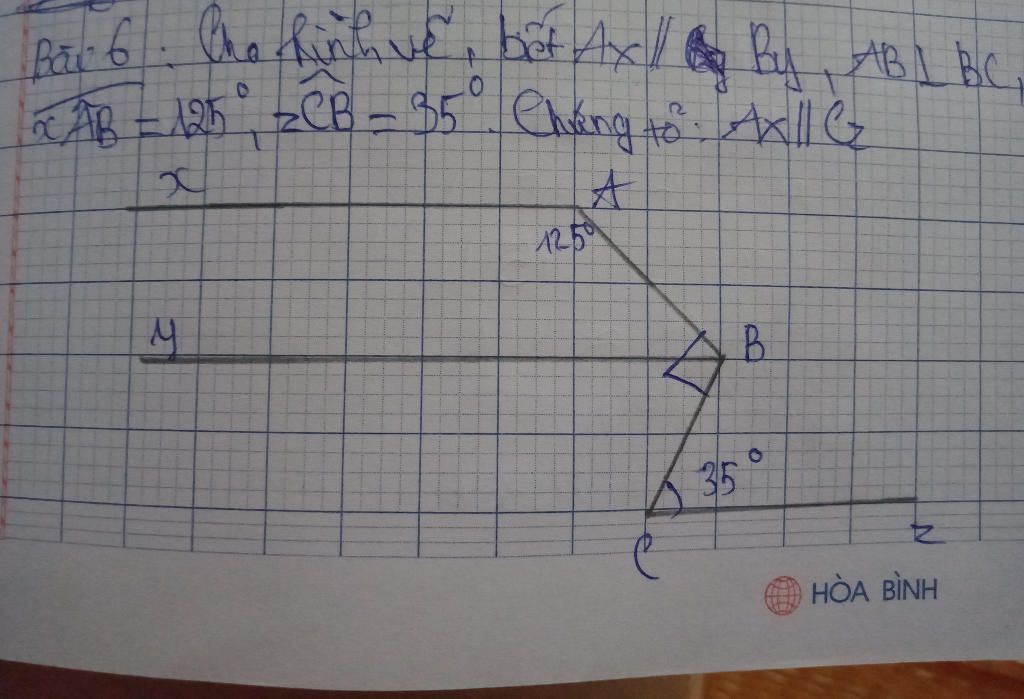 Bài 6 : Cho hình vẽ, biết Ax // By, AB ⊥ BC,
xAB = 125°, zCB = 35°. Chứng tỏ: Ax // Cz
x
A
125°
y
B
35°
C
z
HÒA BÌNH